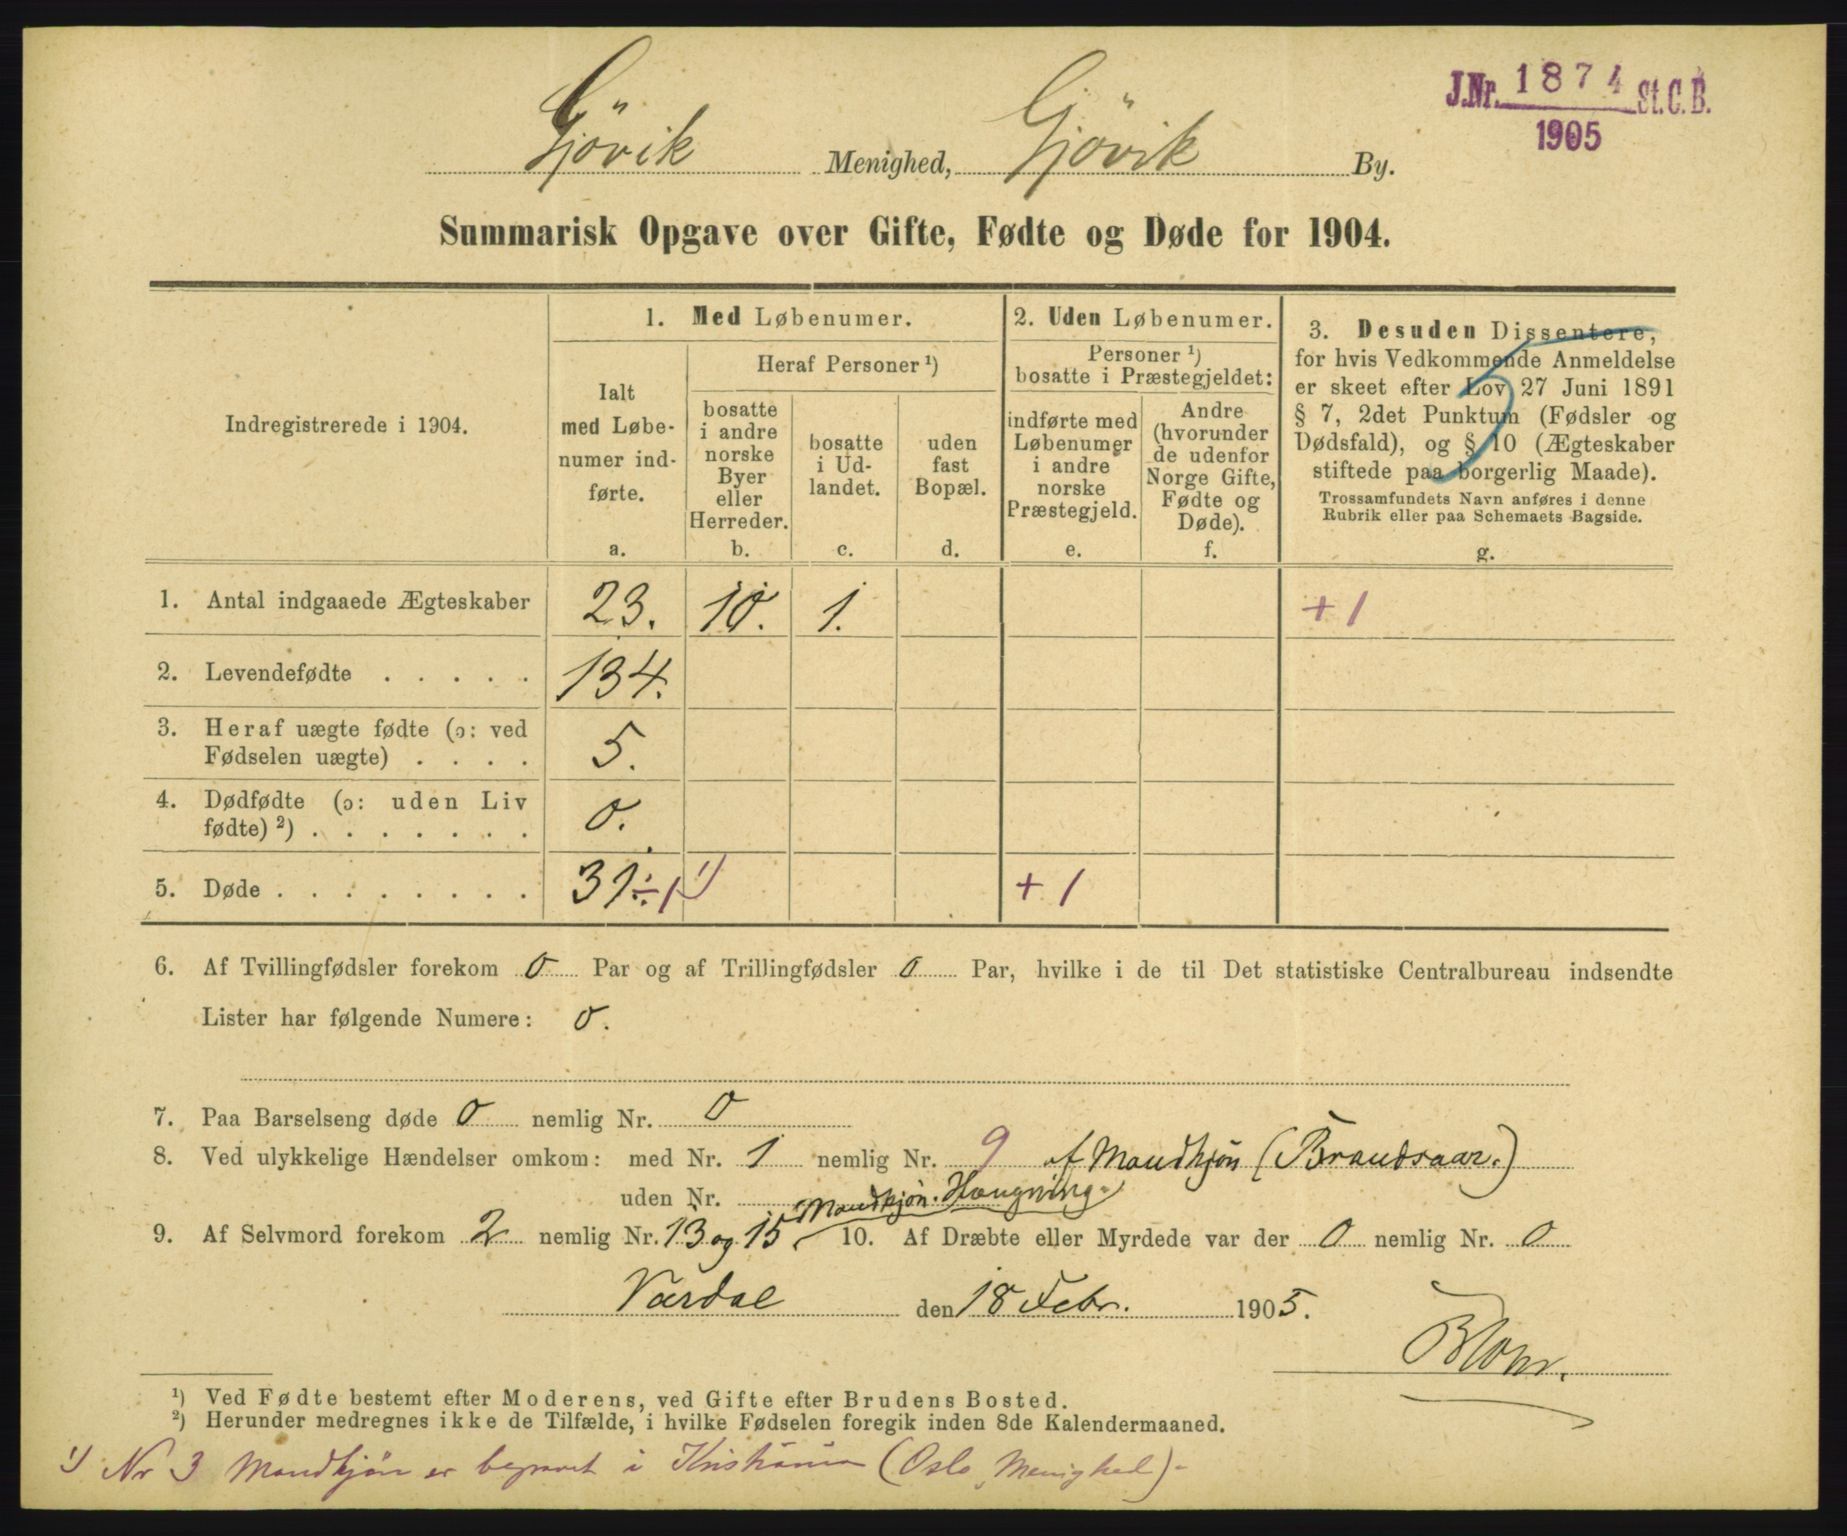 J.Nr. 1874 St.C.B.
1905
Gjövik Menighed, Gjövik By.
Summarisk Opgave over Gifte, Fødte og Døde for 1904.
Indregistrerede i 1904.
1. Med Løbenumer.
Ialt
med Løbe-
numer ind-
førte.
a.
Heraf Personer ¹)
bosatte
i andre
norske
Byer
eller
Herreder.
b.
bosatte
i Ud-
landet.
c.
uden
fast
Bopæl.
d.
2. Uden Løbenumer.
Personer ¹)
bosatte i Præstegjeldet:
indførte med
Løbenumer
i andre
norske
Præstegjeld.
e.
Andre
(hvorunder
de udenfor
Norge Gifte,
Fødte og
Døde).
f.
3. Desuden Dissentere,
for hvis Vedkommende Anmeldelse
er skeet efter Lov 27 Juni 1891
§ 7, 2det Punktum (Fødsler og
Dødsfald), og § 10 (Ægteskaber
stiftede paa borgerlig Maade).
Trossamfundets Navn anføres i denne
Rubrik eller paa Schemaets Bagside.
g.
5
1. Antal indgaaede Ægteskaber 23. 10. 1. + 1
2. Levendefødte . . . . . 134.
3. Heraf uægte fødte (ɔ: ved
Fødselen uægte) . . . . 5.
4. Dødfødte (ɔ: uden Liv
fødte) ²) . . . . . . . 0.
5. Døde . . . . . . . . 31 ÷ 1 ¹) + 1
6. Af Tvillingfødsler forekom 0 Par og af Trillingfødsler 0 Par, hvilke i de til Det statistiske Centralbureau indsendte
Lister har følgende Numere: 0.
7. Paa Barselseng døde 0 nemlig Nr. 0
8. Ved ulykkelige Hændelser omkom: med Nr. 1 nemlig Nr. 9 af Mandkjön (Brandsaar.)
uden Nr.
Mandkjön. Hængning.
9. Af Selvmord forekom 2 nemlig Nr. 13 og 15. 10. Af Dræbte eller Myrdede var der 0 nemlig Nr. 0
Vardal den 18 Febr. 1905.
Blom.
¹) Ved Fødte bestemt efter Moderens, ved Gifte efter Brudens Bosted.
²) Herunder medregnes ikke de Tilfælde, i hvilke Fødselen foregik inden 8de Kalendermaaned.
¹) Nr 3 Mandkjön er begravet i Kristiania (Oslo Menighed)-